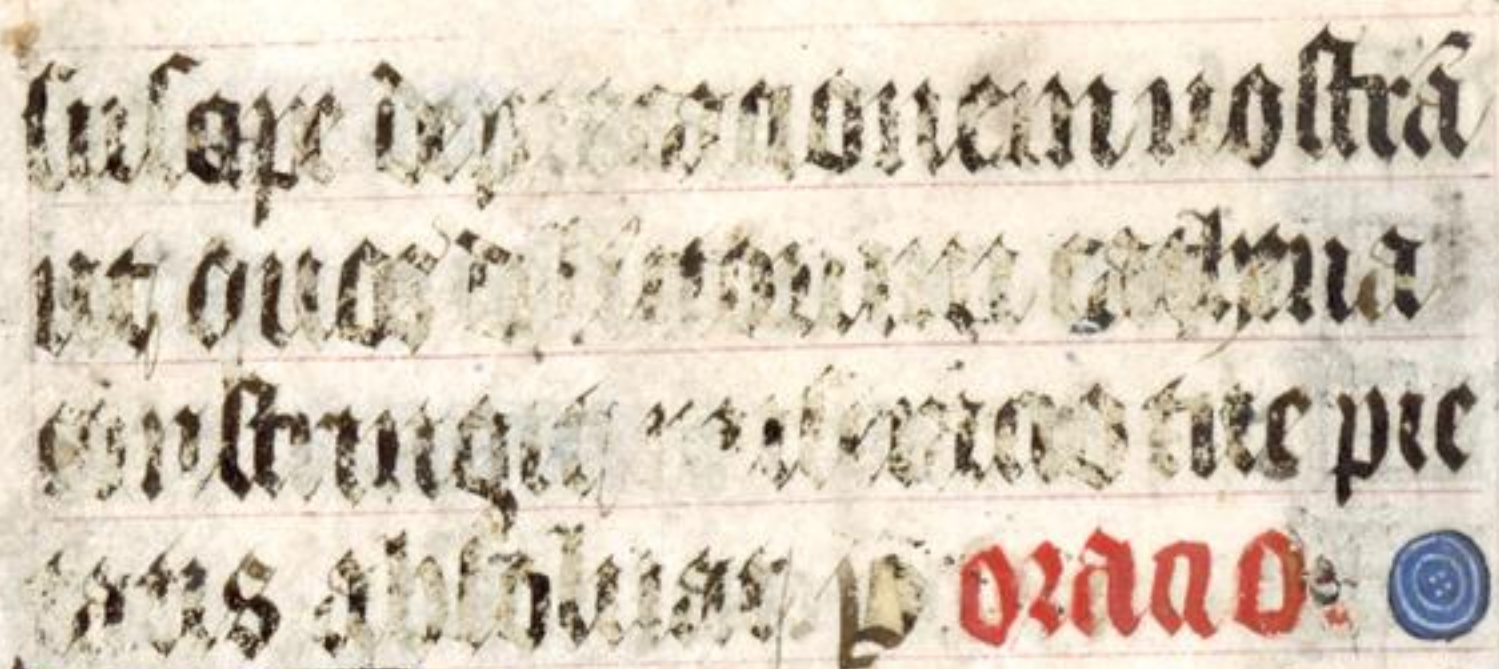 suscipe deprecationem nostrã
ut quos delictorum cathena
constringit miseratio tue pie
tatis absoluat. P oratio